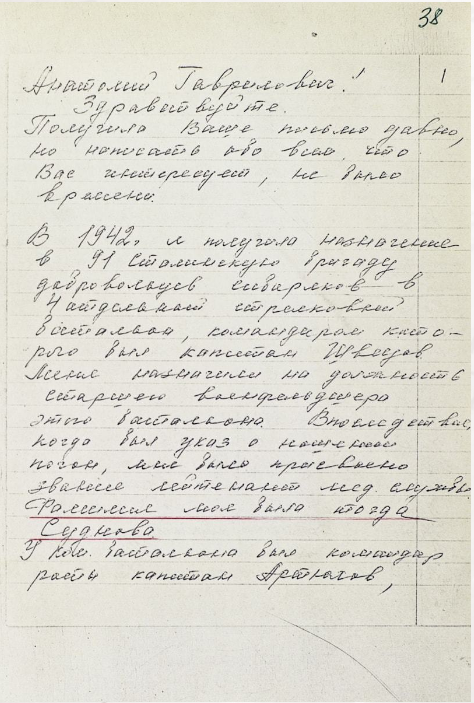 38
1
Анатолий Гаврилович!
Здравствуйте.
Получила Ваше письмо давно,
но написать обо всем, что
Вас интересует, не было
времени.
В 1942г я получила назначение
в 91 Сталинскую бригаду
добровольцев сибиряков в
4 отдельный стрелковый
батальон, командиром кото-
рого был капитан Швецов
Меня назначили на должность
старшего военфельдшера
этого батальона. Впоследствие,
когда был указ о ношении
погон, мне было присвоено
звание лейтенант мед. службы.
Фамилия моя была тогда
Суднова
У ком. батальона был командир
роты капитан Артюхов,